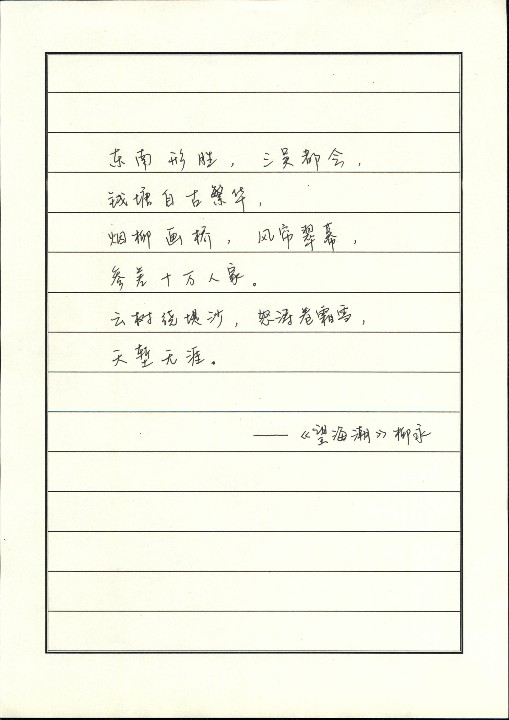 东南形胜，三吴都会，
钱塘自古繁华，
烟柳画桥，风帘翠幕，
参差十万人家。
云树绕堤沙，怒涛卷霜雪，
天堑无涯。
——《望海潮》柳永